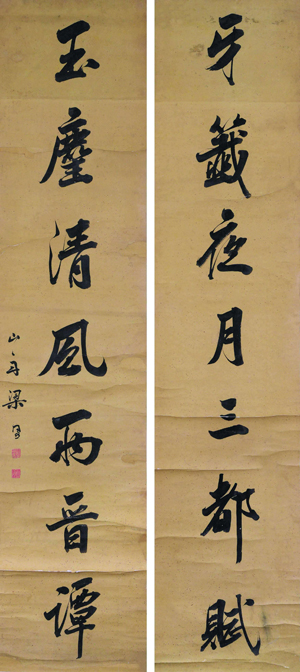 牙籤夜月三都賦
玉麈清風兩晉譚
山舟梁